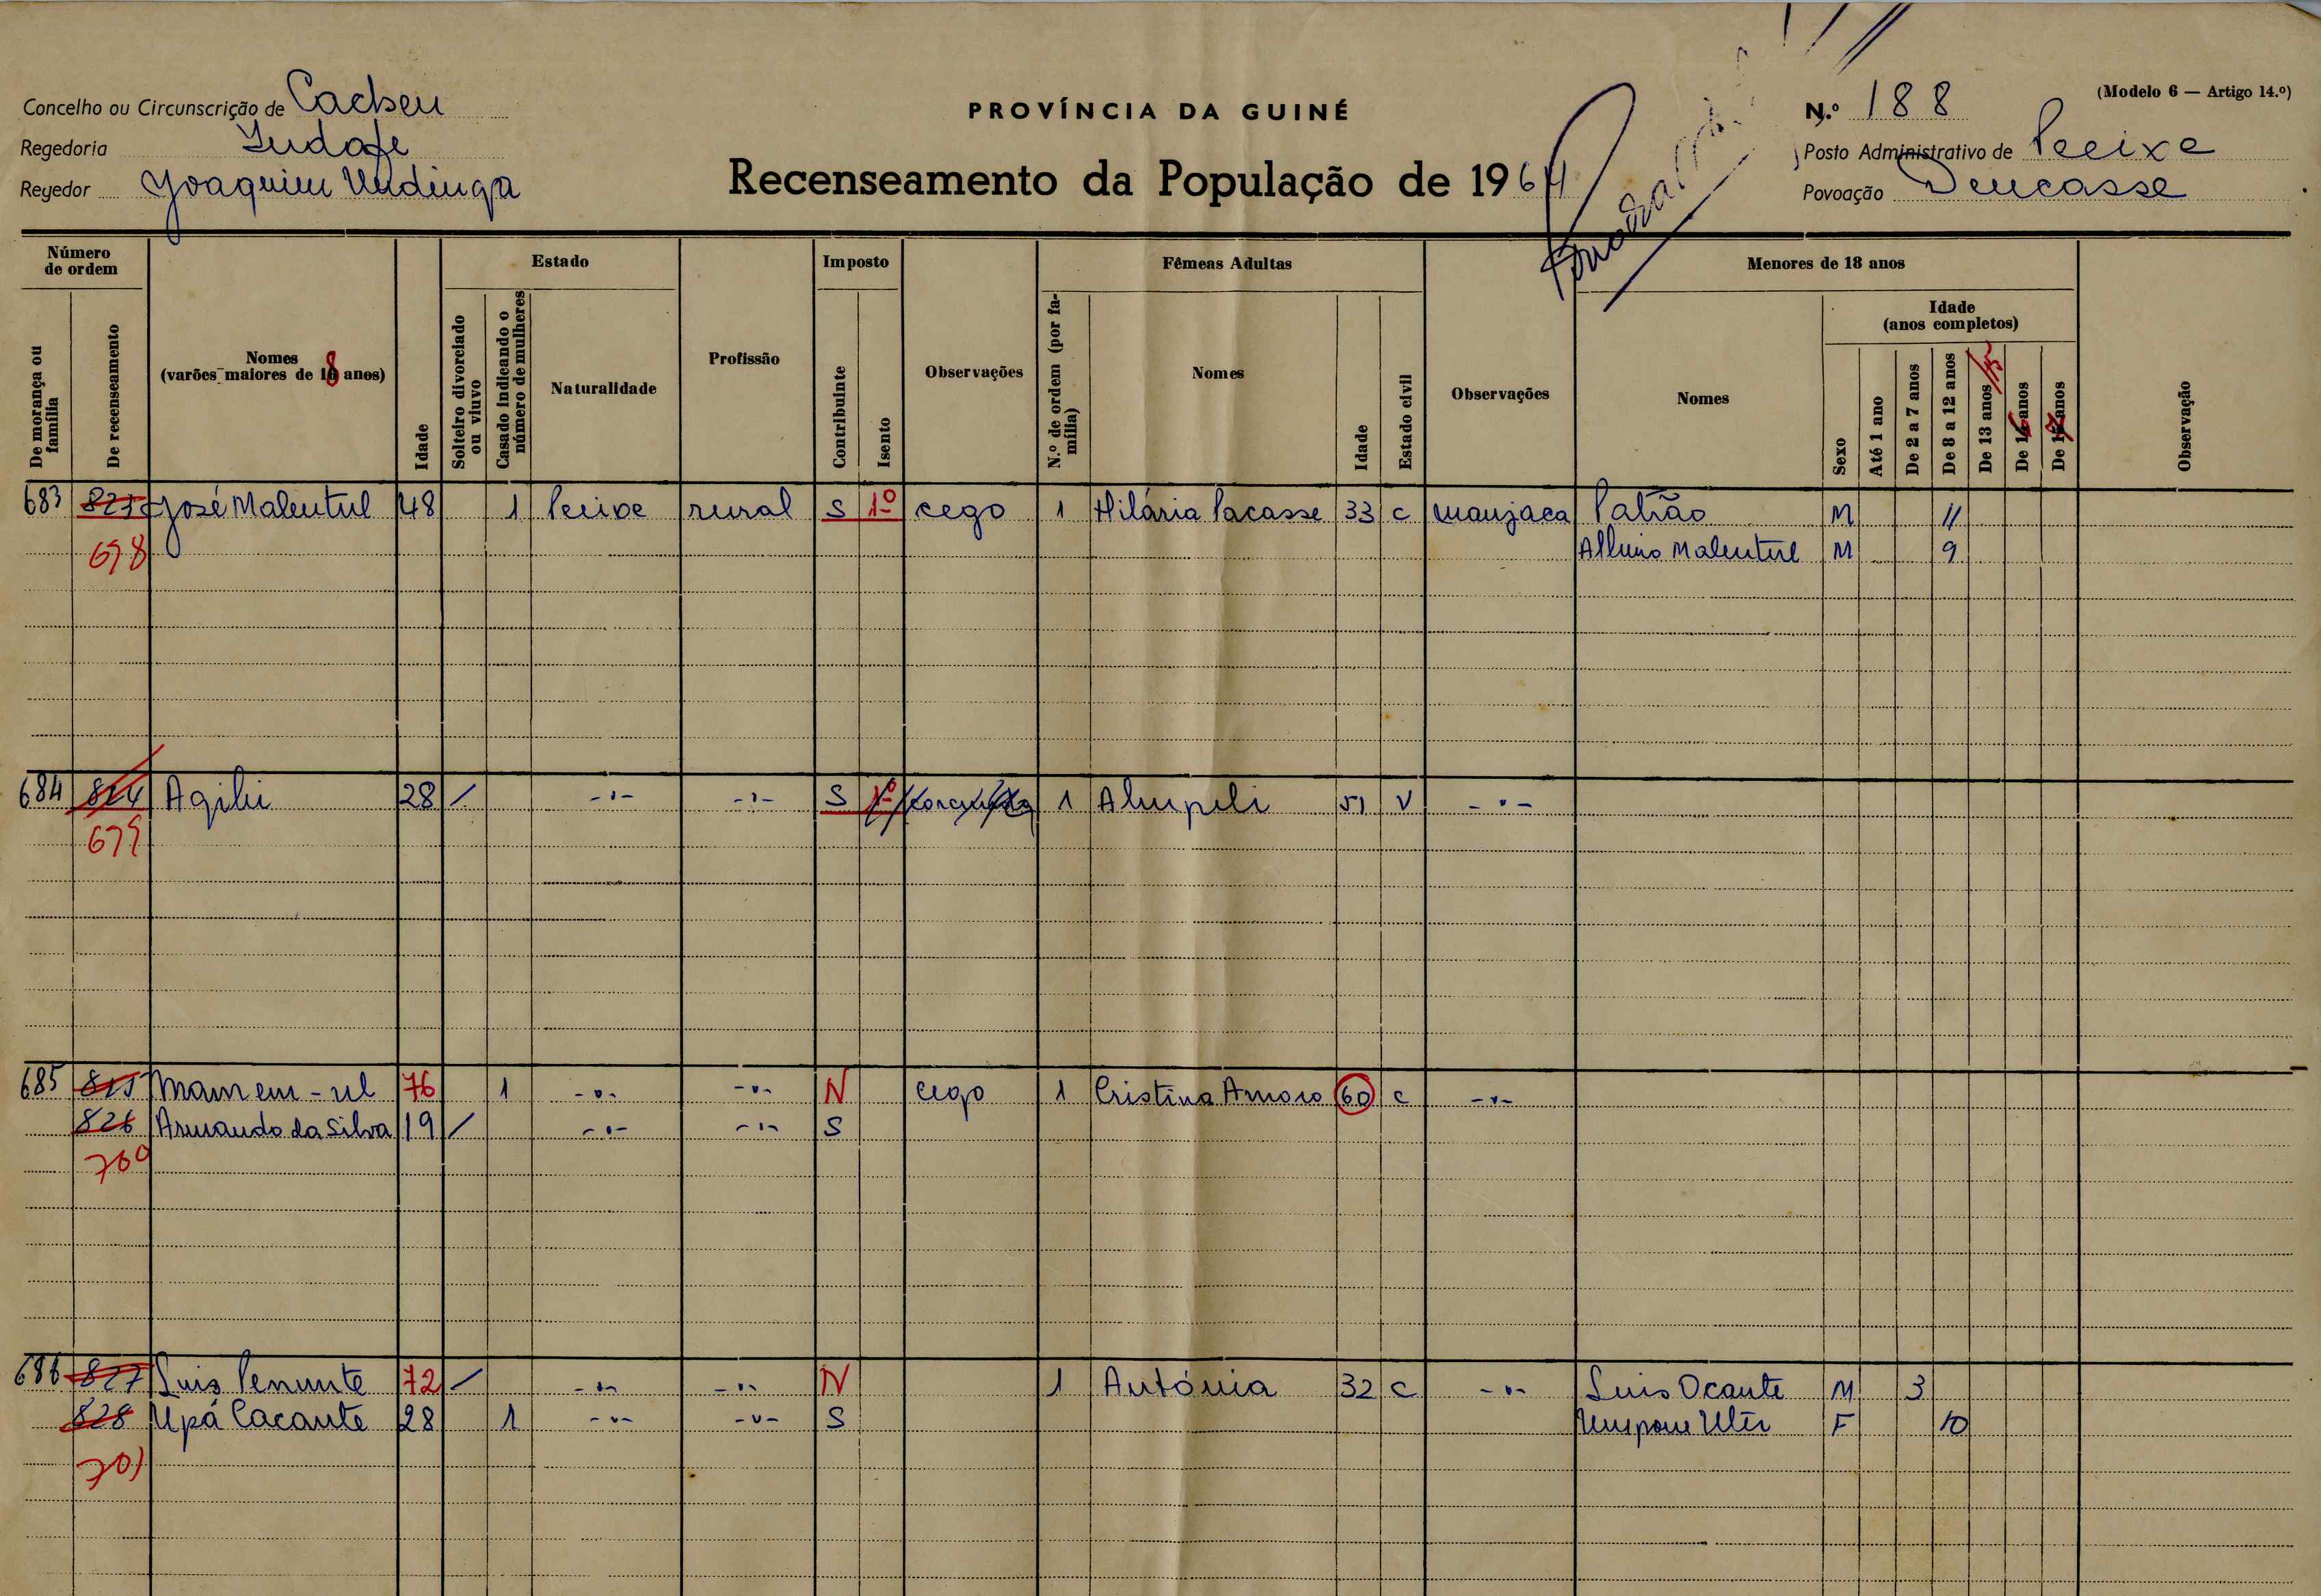 Concelho ou Circunscrição de Cacheu
Regedoria
Regedor Joaquim
PROVÍNCIA DA GUINÉ
Recenseamento da População de 1964
N.º 188
(Modelo 6 — Artigo 14.º)
Posto Administrativo de Pecixe
Povoação
Número de ordem
De morança ou família
De recenseamento
Nomes (varões maiores de 18 anos)
Idade
Estado
Solteiro divorciado ou viuvo
Casado indicando o número de mulheres
Naturalidade
Profissão
Imposto
Contribuinte
Isento
Observações
Fêmeas Adultas
N.º de ordem (por família)
Nomes
Idade
Estado civil
Observações
Menores de 18 anos
Nomes
Idade (anos completos)
Sexo
Até 1 ano
De 2 a 7 anos
De 8 a 12 anos
De 13 anos 15
De 16 anos
De 17 anos
Observação
683 823 José Malentul 48 1 Pecixe rural S 1º cego 1 Hilária Pacasse 33 c manjaca Patrão M 11
698 Malentul M 9
684 824 28 / -"- -"- S 1º 1 51 V -"-
699
685 825 76 1 -"- -"- N cego 1 Cristina 60 c -"-
826 Armando da Silva 19 / -"- -"- S
700
686 827 Luis 72 / -"- -"- N 1 Antónia 32 c -"- Luis Ocante M 3
828 Upá Cacante 28 1 -"- -"- S F 10
701